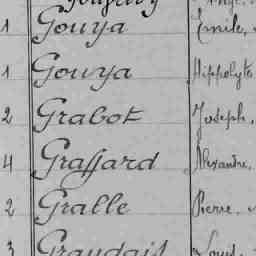 1 Gouya Émile,
1 Gouya Hippolyte
2 Grabot Joseph,
4 Graffard Alexandre,
2 Gralle Pierre,
3 Grandais Louis